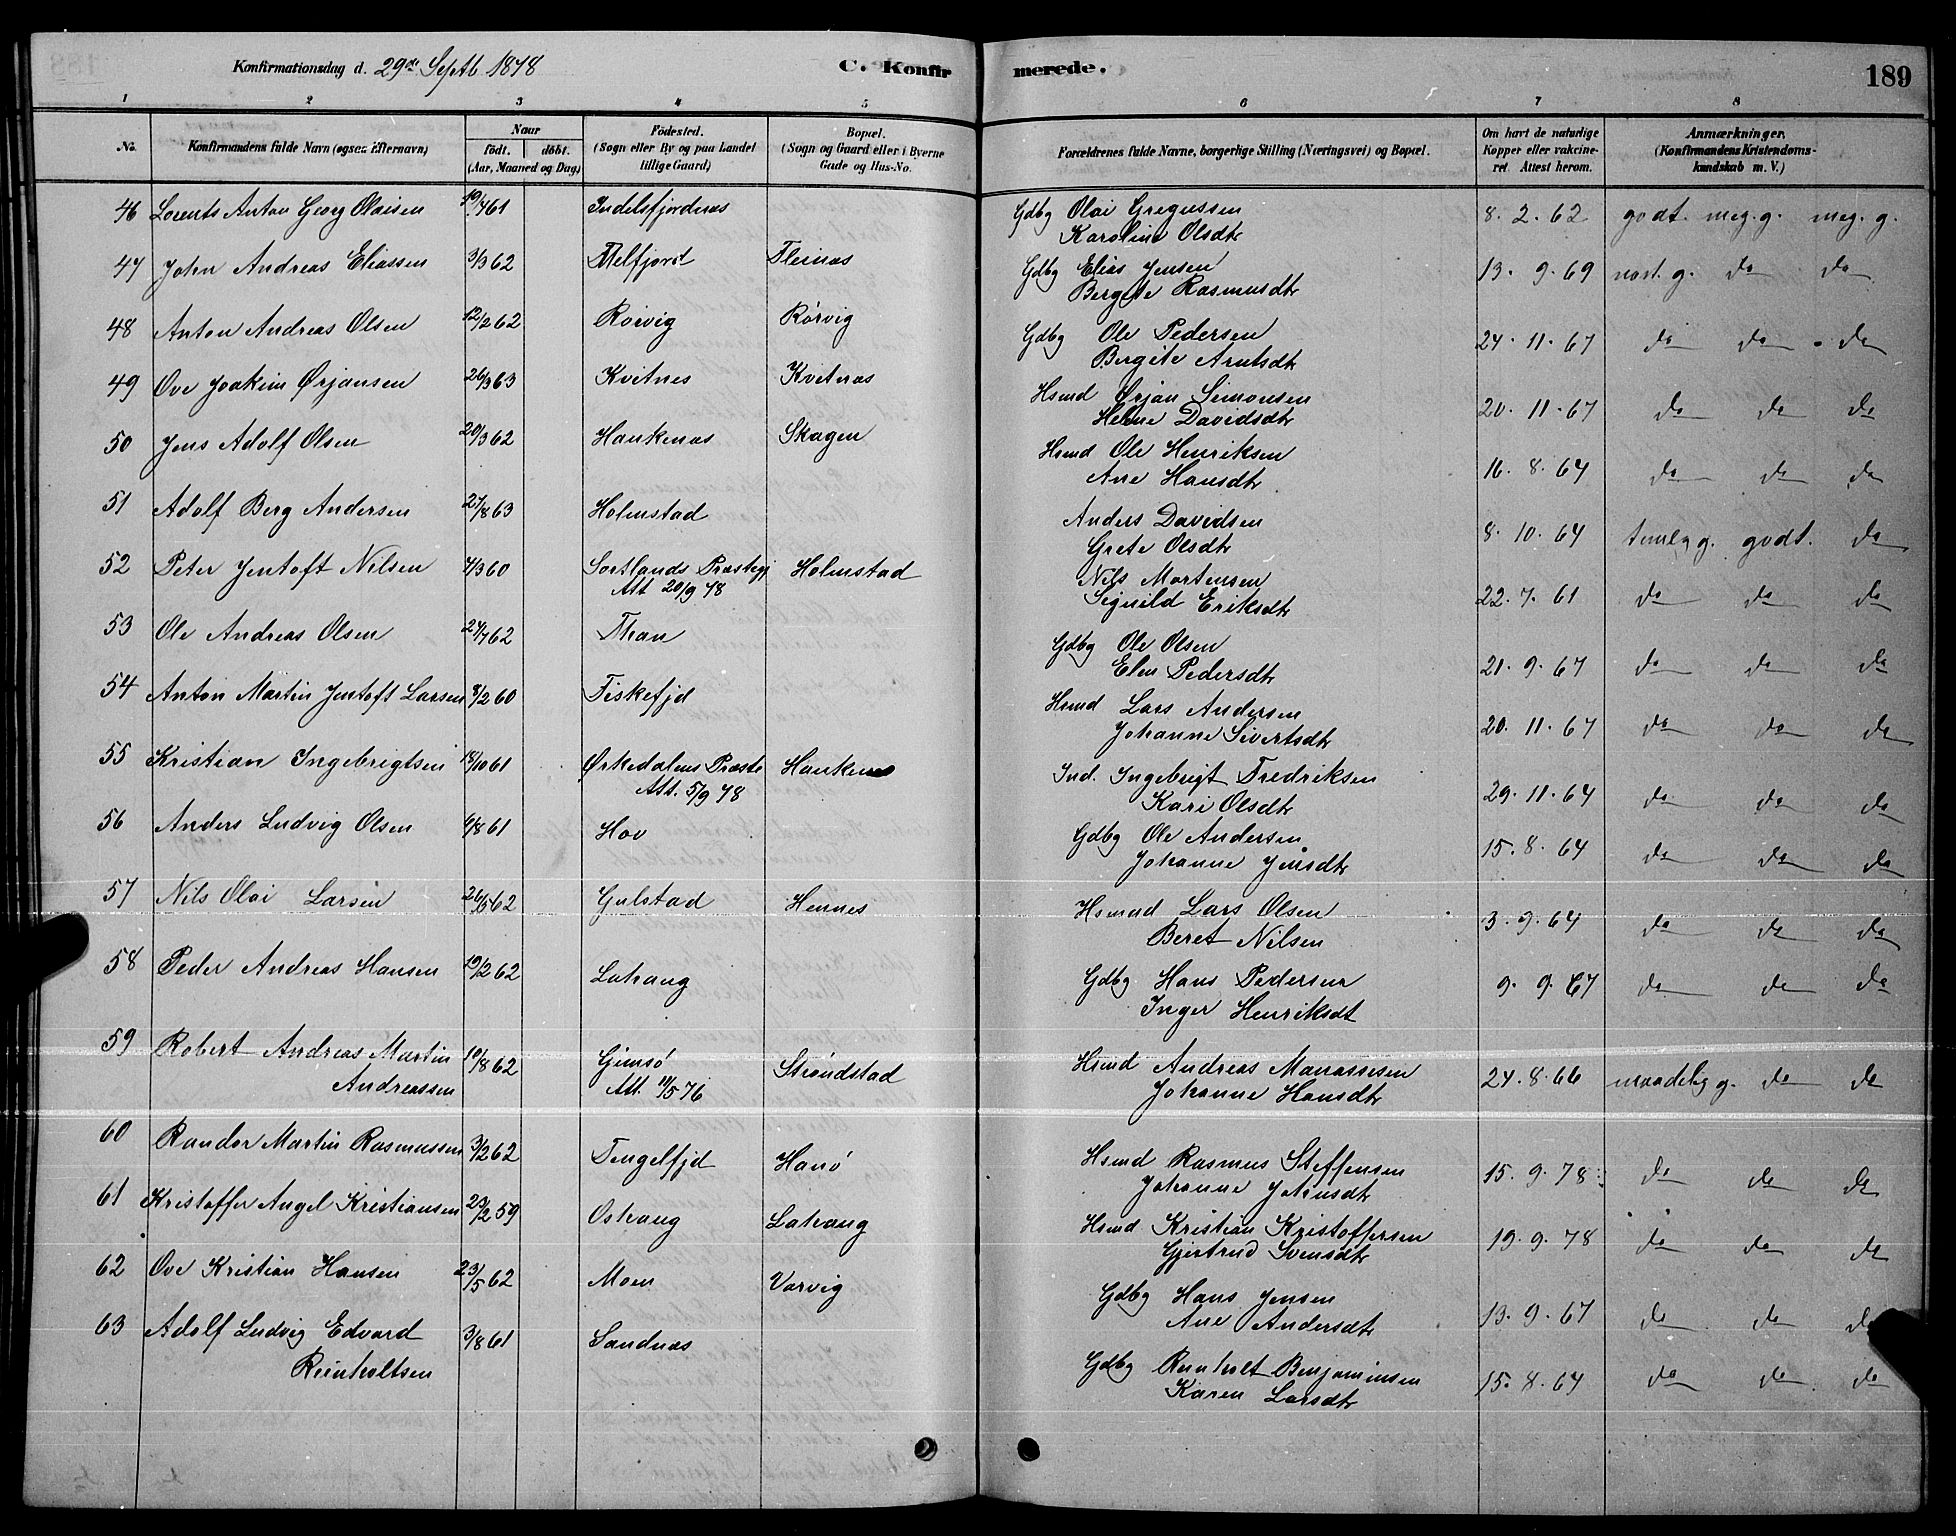 Konfirmationsdag d. 29de Septb. 1878 C. Konfirmerede. 189
1 2 3 4 5 6 7 8
No. Konfirmandens fulde Navn (ogsaa Efternavn) Naar født. døbt. (Aar, Maaned og Dag) Fødested. (Sogn eller By og paa Landet tillige Gaard) Bopæl. (Sogn og Gaard eller i Byerne Gade og Hus-No. Forældrenes fulde Navne, borgerlige Stilling (Næringsvei) og Bopæl. Om havt de naturlige Kopper eller vakcineret. Attest herom. Anmærkninger. (Konfirmandens Kristendomskundskab m. V.)
46 Lorents Anton Georg Olaisen 19/4 61 Indelsfjordnæs Gdbg Olai Gregussen 8. 2. 62 godt. meg. g. meg. g.
Karoline Olsdtr
47 John Andreas Eliassen 3/3 62 Melfjord Fleinæs Gdbg Elias Jensen 13. 9. 69 næst. g. do do
Bergite Rasmusdtr
48 Anton Andreas Olsen 12/2 62 Rørvig Rørvig Gdbg Ole Pedersen 24. 11. 67 do do do
Bergite Arntsdtr
49 Ove Joakim Ørjansen 26/3 63 Kvitnes Kvitnæs Hsmd Ørjan Simonsen 20. 11. 67 do do do
Helene Davidsdtr
50 Jens Adolf Olsen 20/3 62 Haukenæs Skagen Hsmd Ole Henriksen 16. 8. 64 do do do
Ane Hansdtr
51 Adolf Berg Andersen 27/8 63 Holmstad Anders Davidsen 8. 10. 64 temlg g. godt. do
Grete Olsdtr
52 Peter Jentoft Nilsen 4/3 60 Sortlands Præstegj Holmstad Nils Mortensen 22. 7. 61 do do do
Att 20/9 78 Signild Eriksdtr
53 Ole Andreas Olsen 24/7 62 Thran Gdbg Ole Olsen 21. 9. 67 do do do
Elen Pedersdtr
54 Anton Martin Jentoft Larsen 8/2 60 Fiskefjd Hsmd Lars Andersen 20. 11. 67 do do do
Johanne Sivertsdtr
55 Kristian Ingebrigtsen 18/10 61 Ørkedalens Præste Haukenes Ind. Ingebrigt Fredriksen 29. 11. 64 do do do
Att. 5/9 78 Kari Olsdtr
56 Anders Ludvig Olsen 4/8 61 Hov Gdbg Ole Andersen 15. 8. 64 do do do
Johanne Jensdtr
57 Nils Olai Larsen 26/5 62 Gulstad Hennes Hsmd Lars Olsen 3. 9. 64 do do do
Beret Nilsen
58 Peder Andreas Hansen 19/2 62 Lahaug Gdbg Hans Pedersen 9. 9. 67 do do do
Inger Henriksdt
59 Robert Andreas Martin 19/8 62 Gimsø Strøndstad Hsmd Andreas Manassesen 24. 8. 66 maadelig g. do do
Andreassen Att. 11/5 76 Johanne Hansdtr
60 Randor Martin Rasmussen 3/2 62 Tengelfjd Hanø Hsmd Rasmus Steffensen 15. 9. 78 do do do
Johanne Johnsdtr
61 Kristoffer Angel Kristiansen 23/2 59 Oshaug Lahaug Hsmd Kristian Kristoffersen 19. 9. 78 do do do
Gjertrud Svensdtr
62 Ove Kristian Hansen 23/5 62 Moen Vorvig Gdbg Hans Jensen 13. 9. 67 do do do
Ane Andersdtr
63 Adolf Ludvig Edvard 3/8 61 Sandnæs Gdbg Reinholt Benjaminsen 15. 8. 64 do do do
Reinholtsen Karen Larsdtr